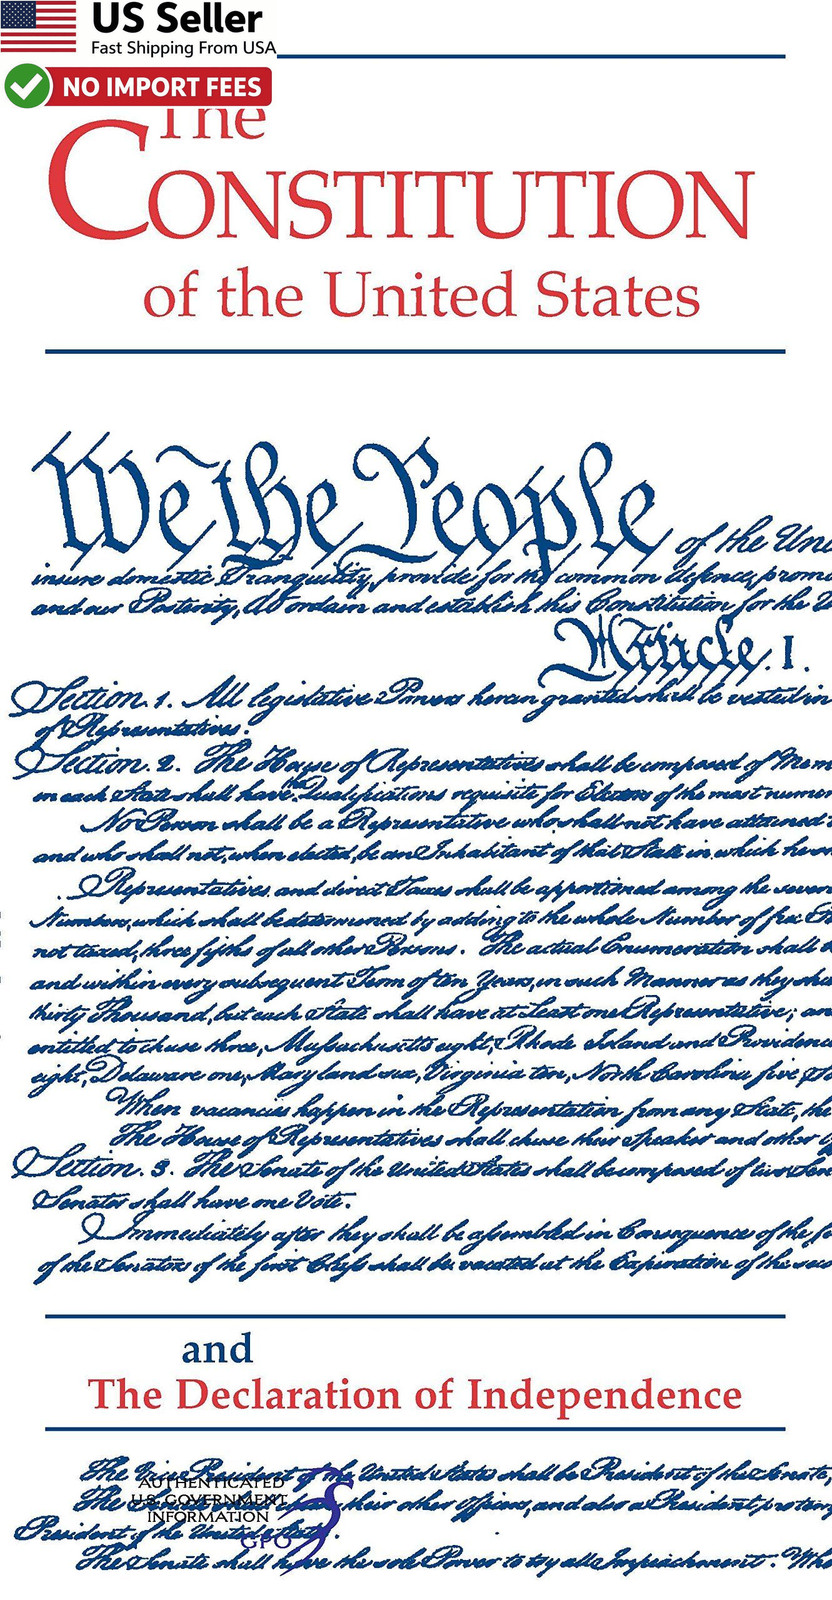 US Seller
Fast Shipping From USA
NO IMPORT FEES
The
CONSTITUTION
of the United States
We the People of the Uni
insure domestic Tranquility, provide for the common defence, promo
and our Posterity, do ordain and establish this Constitution for the U
Article. I.
Section. 1. All legislative Powers herein granted shall be vested in
of Representatives.
Section. 2. The House of Representatives shall be composed of Mem
in each State shall have the Qualifications requisite for Electors of the most numer
No Person shall be a Representative who shall not have attained
and who shall not, when elected, be an Inhabitant of that State in which he
Representatives and direct Taxes shall be apportioned among the sever
Numbers, which shall be determined by adding to the whole Number of free
not taxed, three fifths of all other Persons. The actual Enumeration shall
and within every subsequent Term of ten Years, in such Manner as they sha
thirty Thousand, but each State shall have at Least one Representative; an
entitled to chuse three, Massachusetts eight, Rhode Island and Providence
eight, Delaware one, Maryland six, Virginia ten, North Carolina five
When vacancies happen in the Representation from any State, the
The House of Representatives shall chuse their Speaker and other
Section. 3. The Senate of the United States shall be composed of two Sen
Senator shall have one Vote.
Immediately after they shall be assembled in Consequence of the
of the Senators of the first Class shall be vacated at the Expiration of the seco
and
The Declaration of Independence
The Vice President of the United States shall be President of the Senate,
AUTHENTICATED
U.S. GOVERNMENT
INFORMATION
GPO
The Senate their other Officers, and also a President pro tem
President of the United States.
The Senate shall have the sole Power to try all Impeachments. Whe